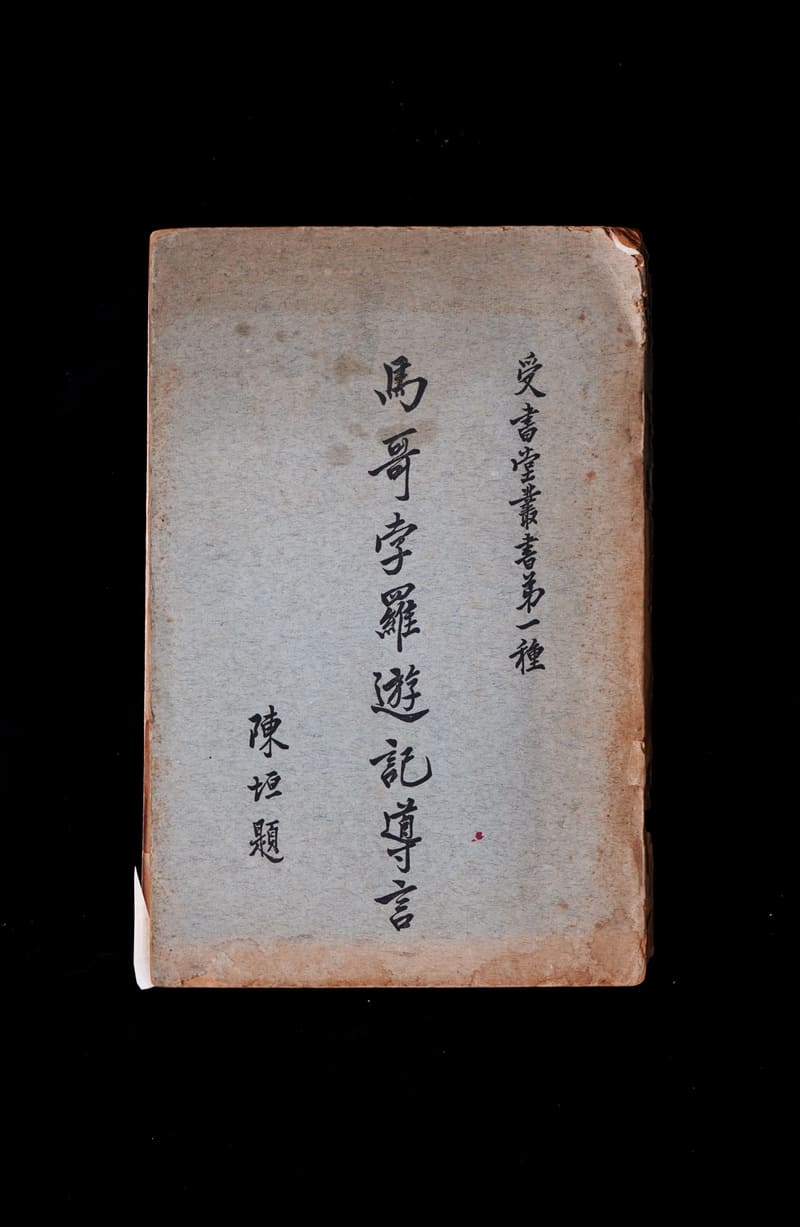 受書堂叢書第一種
馬哥孛羅遊記導言
陳垣題